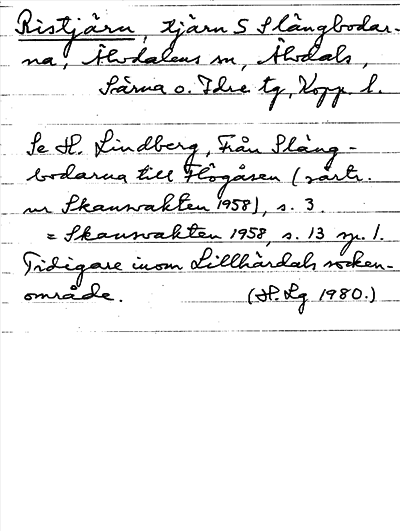 Ristjärn, tjärn S Slångbodar-
na, Älvdalens sn, Älvdals,
Särna o. Idre tg, Kopp. l.
Se H. Lindberg, Från Slång-
bodarna till Flögåsen (särtr.
ur Skansvakten 1958), s. 3.
= Skansvakten 1958, s. 13 sp. 1.
Tidigare inom Lillhärdals socken-
område. (H. Lg 1980.)